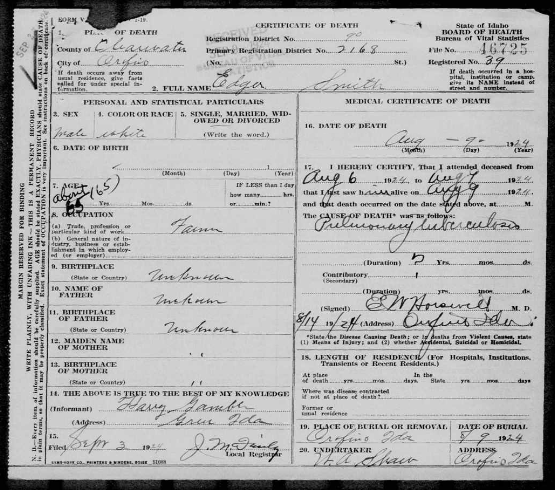 CERTIFICATE OF DEATH
State of Idaho
BOARD OF HEALTH
Bureau of Vital Statistics
PLACE OF DEATH
Registration District No. 90
File No. 46725
County of Clearwater
Primary Registration District No. 2168
Registered No. 39
City of Orofino
(No. St.)
If death occurred in a hospital, institution or camp, give its NAME instead of street and number.
If death occurs away from usual residence, give facts called for under special information.
2. FULL NAME Edgar Smith
PERSONAL AND STATISTICAL PARTICULARS
3. SEX
4. COLOR OR RACE
5. SINGLE, MARRIED, WIDOWED OR DIVORCED
(Write the word.)
male white
6. DATE OF BIRTH
(Month) (Day) (Year)
7. AGE
about (65)
65
Yrs. Mos. ds.
IF LESS than 1 day
how many hrs.
or min.?
8. OCCUPATION
(a) Trade, profession or particular kind of work
(b) General nature of industry, business or establishment in which employed (or employer)
9. BIRTHPLACE
(State or Country) Unknown
10. NAME OF FATHER Unknown
11. BIRTHPLACE OF FATHER
(State or Country) Unknown
12. MAIDEN NAME OF MOTHER "
13. BIRTHPLACE OF MOTHER
(State or Country) "
14. THE ABOVE IS TRUE TO THE BEST OF MY KNOWLEDGE
(Informant) Harry Gamble
(Address) Ida
15.
Filed Sept 3 1924
Local Registrar
MEDICAL CERTIFICATE OF DEATH
16. DATE OF DEATH
Aug - 9 - 1924
(Month) (Day) (Year)
17. I HEREBY CERTIFY, That I attended deceased from
Aug 6 1924, to Aug 9 1924
that I last saw him alive on Aug 9 1924
and that death occurred on the date stated above, at M.
The CAUSE OF DEATH* was as follows:
Pulmonary tuberculosis
(Duration) 5 Yrs. mos. ds.
Contributory
(Secondary)
(Duration) Yrs. mos. ds.
(Signed) E W Horswell M. D.
8/14 1924 (Address) Orofino Ida
*State the Disease Causing Death; or in deaths from Violent Causes, state (1) Means of Injury; and (2) whether Accidental, Suicidal or Homicidal.
18. LENGTH OF RESIDENCE (For Hospitals, Institutions, Transients or Recent Residents.)
At place of death yrs. mos. days.
In the State yrs. mos. days
Where was disease contracted if not at place of death?
Former or usual residence
19. PLACE OF BURIAL OR REMOVAL
DATE OF BURIAL
Orofino Ida
8/9 1924
20. UNDERTAKER
ADDRESS
W. A. Shaw
Orofino Ida
MARGIN RESERVED FOR BINDING
WRITE PLAINLY, WITH UNFADING INK—THIS IS A PERMANENT RECORD